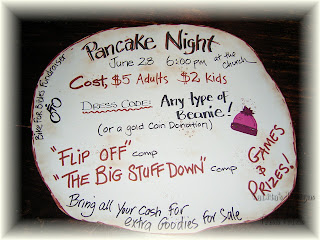 Pancake Night
June 28 6:00pm at the Church
Cost, $5 Adults $2 kids
Bike for Bibles Fundraiser
DRESS CODE: Any type of Beanie!
(or a gold coin Donation)
"FLIP OFF" comp
"THE BIG STUFF DOWN" comp
GAMES & PRIZES!
Bring all your cash for
extra Goodies for Sale